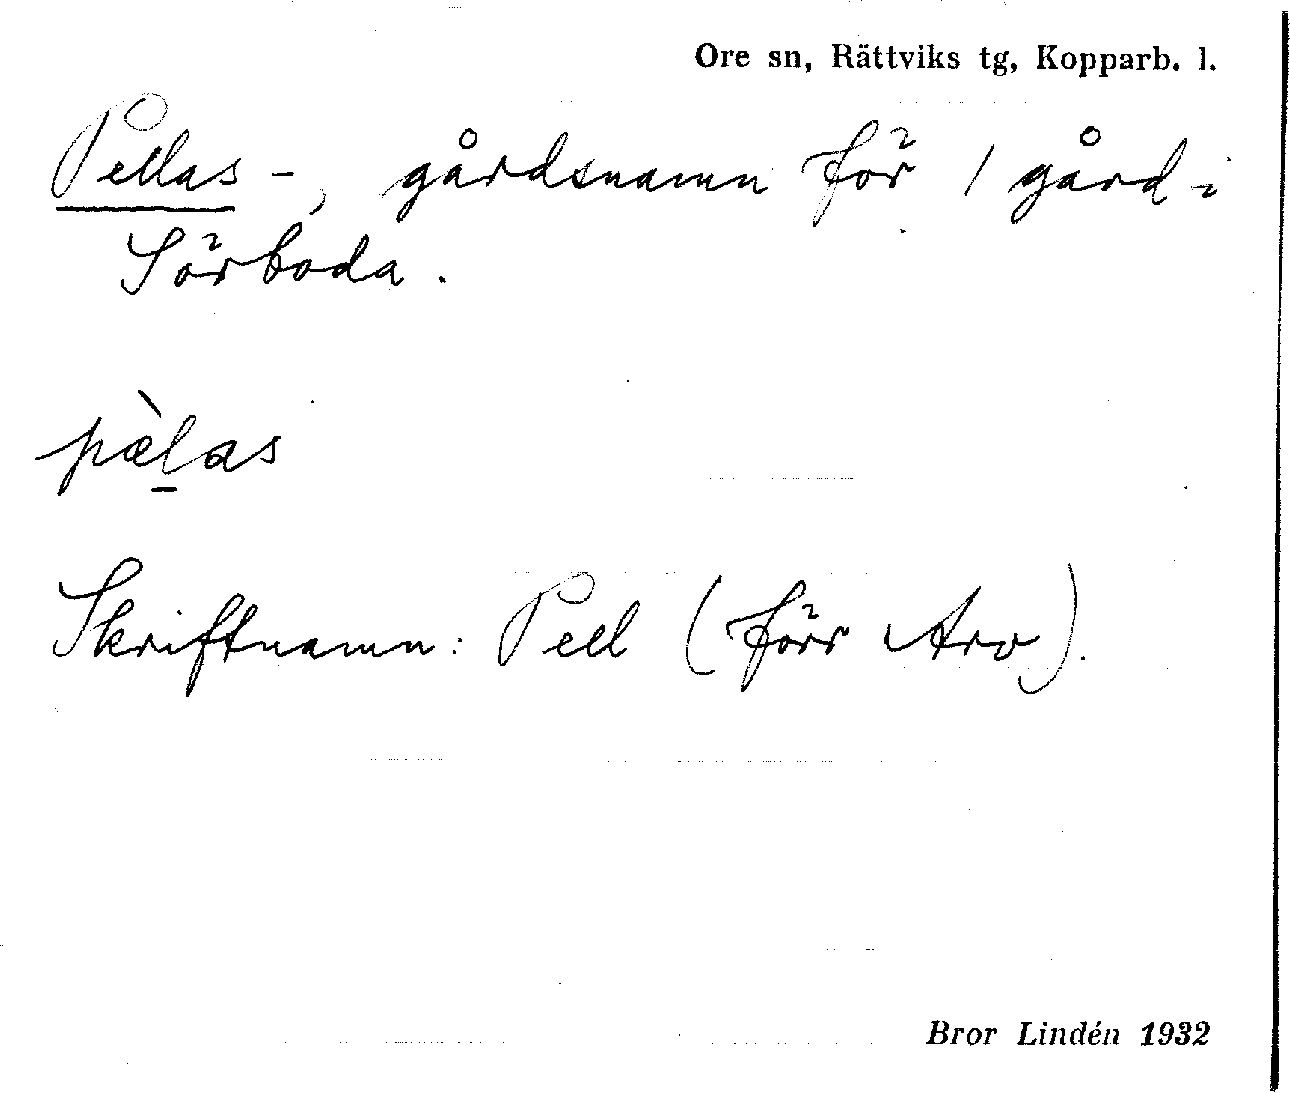 Ore sn, Rättviks tg, Kopparb. l.
Pellas -, gårdsnamn för 1 gård i
Sörboda.
pæ̀l̠as
Skriftnamn: Pell (förr Aro).
Bror Lindén 1932